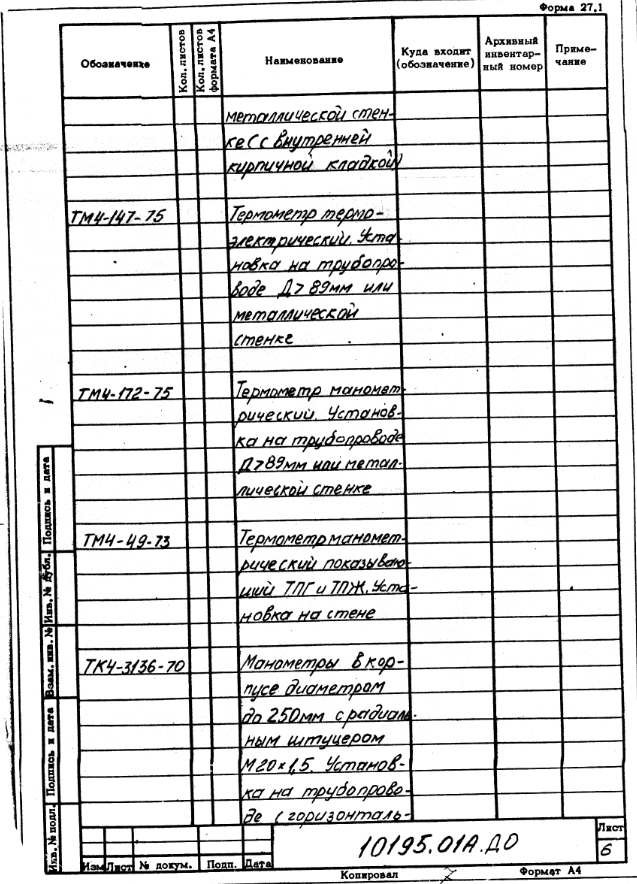 Форма 27.1
Обозначение
Кол. листов
Кол. листов формата А4
Наименование
Куда входит (обозначение)
Архивный инвентарный номер
Примечание
металлической стен-
ке (с внутренней
кирпичной кладкой)
ТМ4-147-75 Термометр термо-
электрический. Уста-
новка на трубопро-
воде Д>89мм или
металлической
стенке
ТМ4-172-75 Термометр маномет-
рический. Установ-
ка на трубопроводе
Д>89мм или метал-
лической стенке
ТМ4-49-73 Термометр маномет-
рический показываю-
щий ТПГ и ТПЖ. Уста-
новка на стене
ТК4-3136-70 Манометры в кор-
пусе диаметром
до 250мм с радиаль-
ным штуцером
М20×1,5. Установ-
ка на трубопрово-
де (горизонталь-
Инв. № подл.
Подпись и дата
Взам. инв. №
Инв. № дубл.
Подпись и дата
10195.01А.Д0
Лист
6
Изм Лист № докум. Подп. Дата
Копировал Формат А4